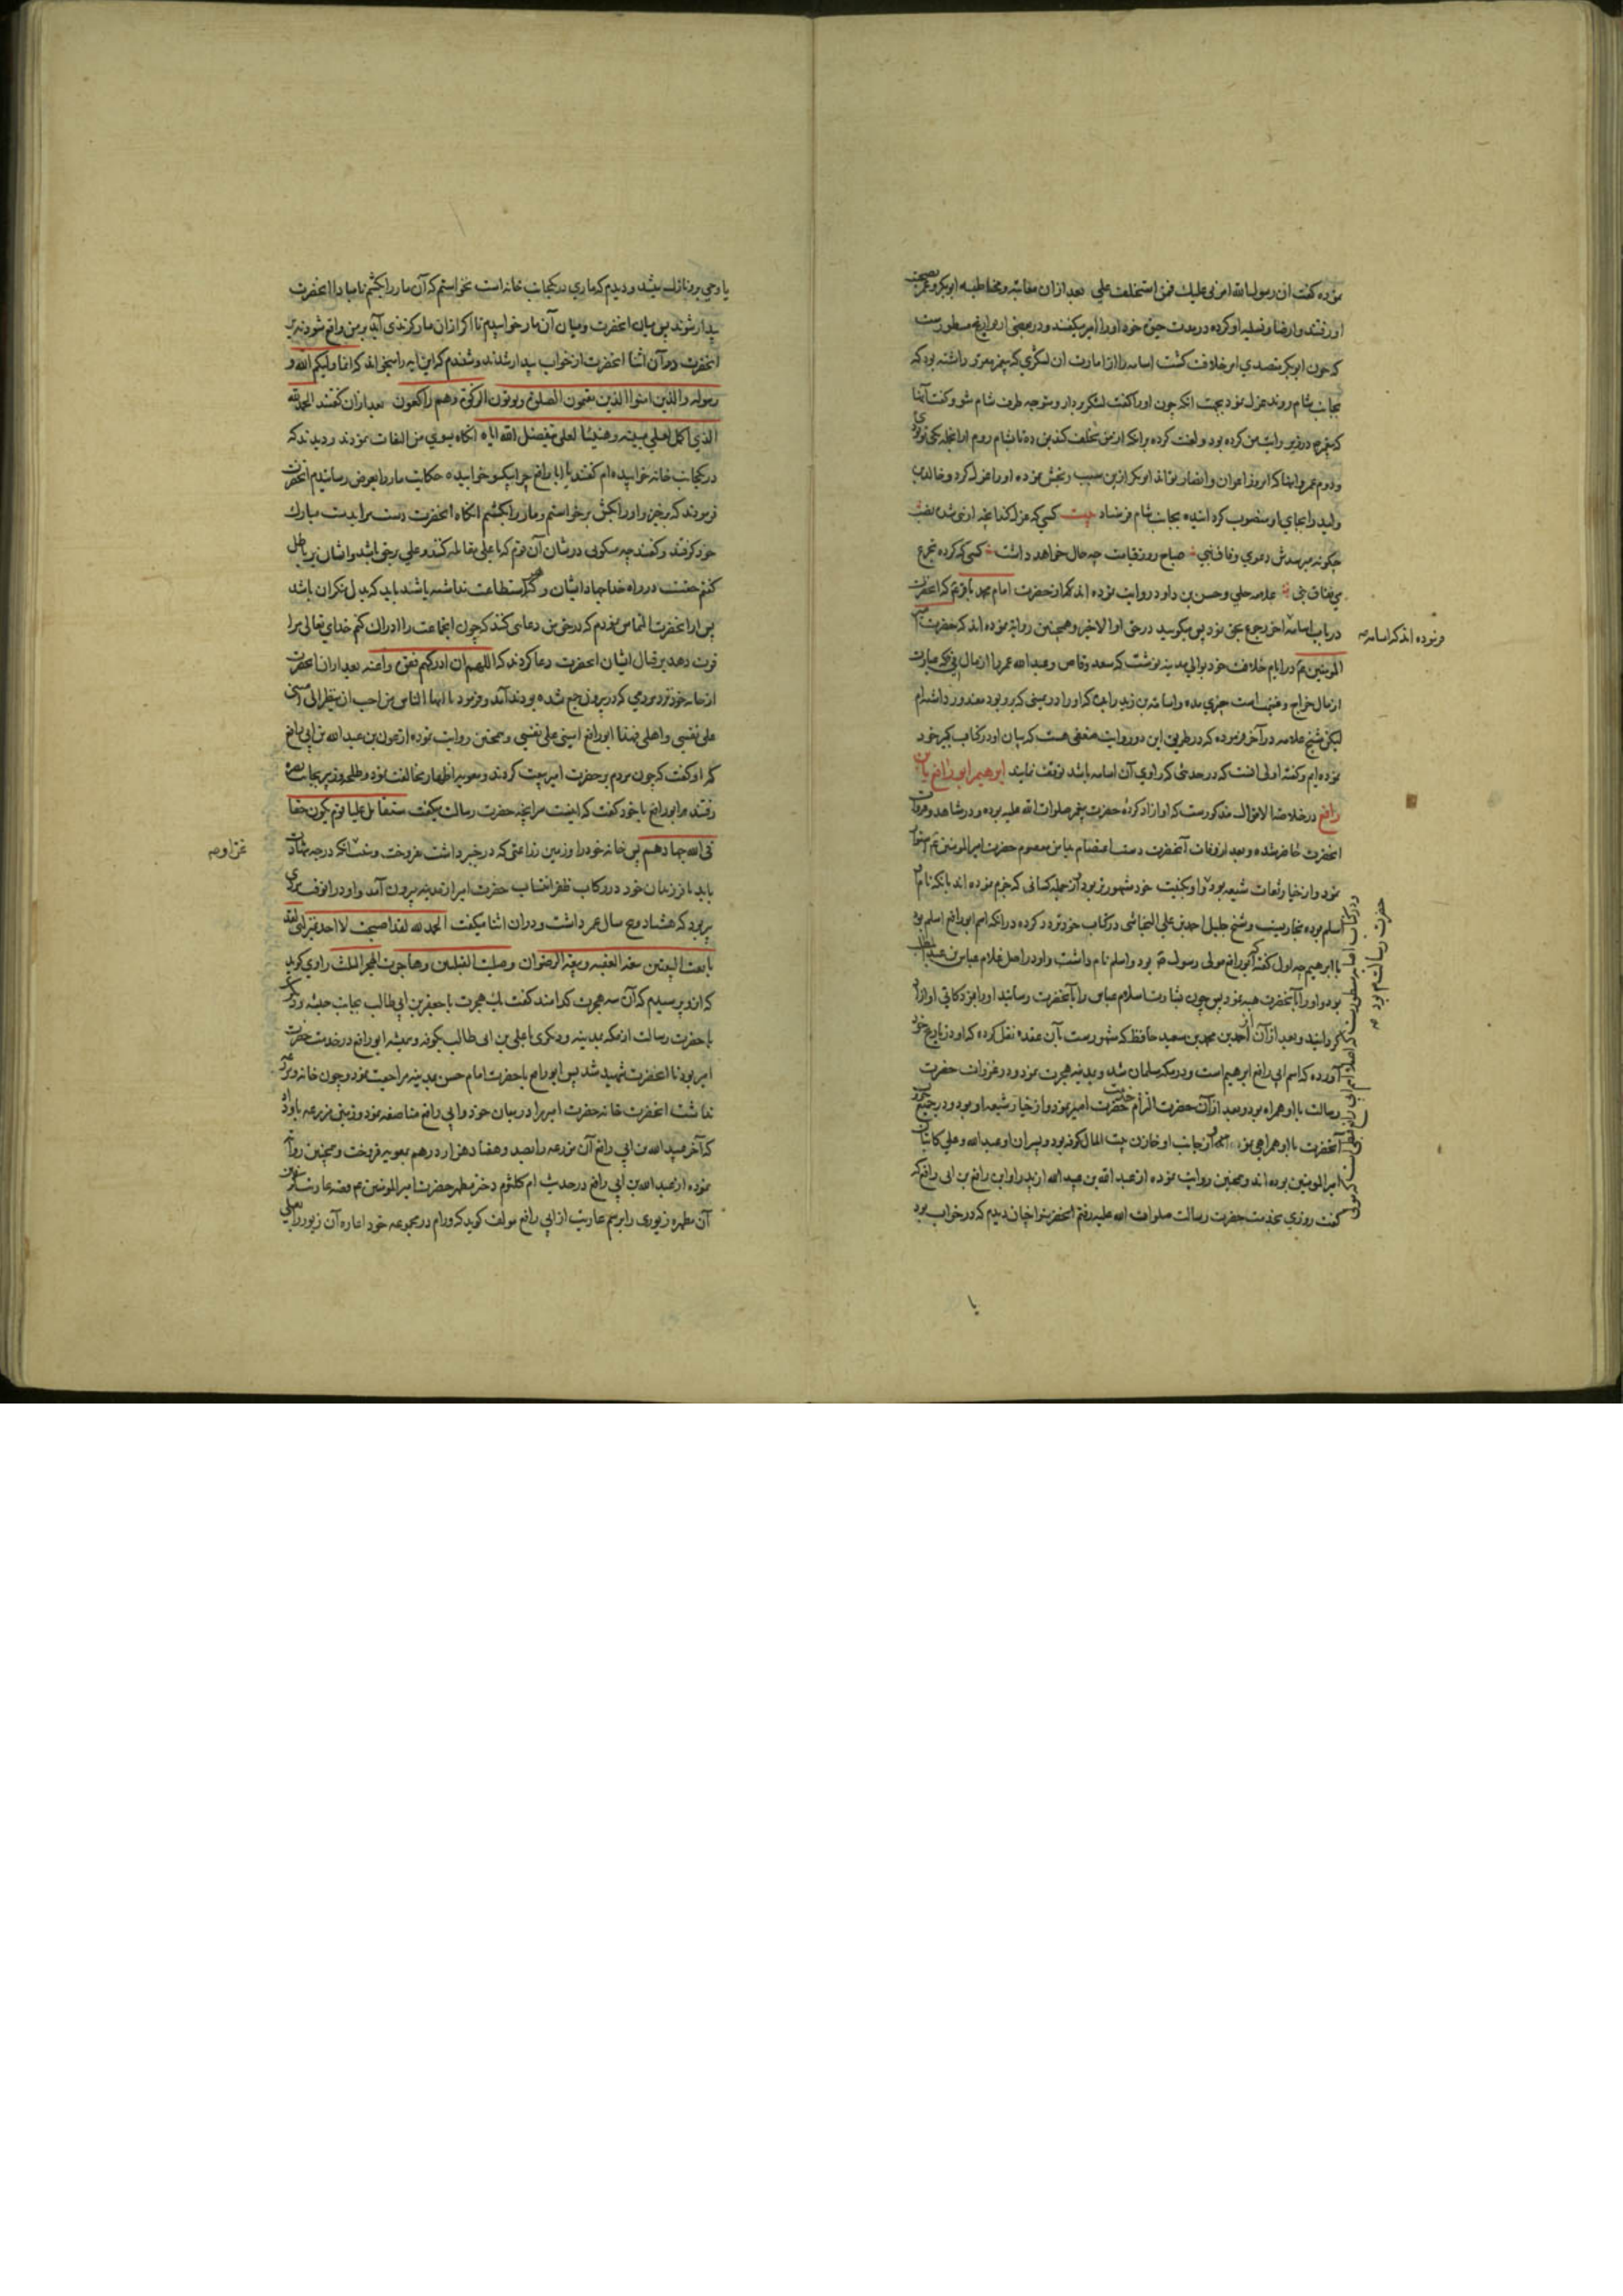 نموده گفت ان رسول الله امرنی علیك فمن استخلفك علی بعد ازان معاتبه و مخاطبه ابوبکر و عمر بصحبت
او رفتند و ارضا و تسلیه او کرده در مدت حیوة خود او را امیر میگفتند و در بعضی از تواریخ مسطورست
که چون ابوبکر متصدی امر خلافت گشت اسامه را از امارت آن لشکری که پیغمبر مقرر داشته بود که
بجانب شام روند عزل نمود بجهت آنکه چون او را گفت لشکر بردار و متوجه طرف شام شو و گفت آیا
که پیغمبر در زیر رایت من کرده بود و لعنت کرده بر آنکه از من تخلف کند بن ده تا بشام روم از آنجمله یکی تو بودی
و دوم عمر و اینها که امروز اعوان و انصار تواند ابوبکر ازین سبب رنجش نموده او را عزل کرد و خالد بن
ولید را بجای او منصوب کردانیده بجانب شام فرستاد بیت کسی که عزل کند آنچه او نبی شده نصب
چگونه میرسدش دعوی وفاق نبی صباح روز قیامت چه حال خواهد داشت کسی که کرده تجرع
می نفاق نبی علامه حلی و حسن بن داود روایت نموده اند که از حضرت امام محمد باقر ع که آنحضرت
در باب اسامه اخر رجوع بحق نمود پس مگویید در حق او الا خیر و همچنین روایة نموده اند که حضرت امیر
المومنین ع در ایام خلافت خود بوالی مدینه نوشت که سعد وقاص و عبد الله عمر را از مال فی که عبارت
از مال خراج و غنیمت است چیزی مده و اسامة بن زید را بده که او را در یمینی که بر و بود معذور داشته ام
لیکن شیخ علامه در آخر فرموده که در طریق این دو روایت ضعفی هست که بیان او در کتاب کبیر خود
نموده ایم و گفته اولی آنست که در حدیثی که راوی آن اسامه باشد توقف نمایند ابرهیم ابو رافع بن
رافع در خلاصة الاقوال مذکورست که او ازاد کردهٔ حضرت پیغمبر صلوات الله علیه بوده و در مشاهد و غزوات
آنحضرت حاضر شده و بعد از وفات آنحضرت دست اعتصام بدامن معصوم حضرت امیر المومنین ع استوار
نمود و از خیار ثقات شیعه بود و او بکنیت خود مشهورتر بود از جمله کسانی که جزم نموده اند بانکه نام او
اسلم بوده بخاریست و شیخ جلیل احمد بن علی النجاشی در کتاب خود تردد کرده در آنکه اسم ابو رافع اسلم بود
یا ابرهیم چه اول گفته که ابو رافع مولی رسول ص بود و اسلم نام داشت و او در اصل غلام عباس بن عبد المطلب
بود و او را بآنحضرت هبه نمود پس چون بشارت اسلام عباس را بآنحضرت رسانید او را بمژدگانی او ازاد
گردانید و بعد از آن از احمد بن محمد بن سعید حافظ که مشهورست بابن عقده نقل کرده که او در تاریخ خود
آورده که اسم ابی رافع ابرهیم است و در مکه مسلمان شد و بمدینه هجرت نمود و در غزوات حضرت
رسالت با او همراه بود و بعد از آن حضرت الزام خدمت حضرت امیر نمود و از خیار شیعه او بود و در جمیع حروب
آنحضرت با او همراهی نمود و از جانب او خازن بیت المال کوفه بود و پسران او عبید الله و علی کاتبان
امیر المومنین بوده اند و همچنین روایت نموده از عبد الله بن عبید الله از پدر او ابن رافع بن ابی رافع که
گفت روزی بخدمت حضرت رسالت صلوات الله علیه رفتم آنحضرت را چنان دیدم که در خواب بود
فرموده اند که اسامه
یا
یا وحی برو نازل میشد و دیدم که ماری در یکجانب خانه است نخواستم که آن مار را بکشم تا مبادا آنحضرت
بیدار شوند پس میان آنحضرت و میان آن مار خوابیدم تا اگر ازان مار گزندی آید بر من واقع شود نه بر
آنحضرت در آن اثنا آنحضرت از خواب بیدار شدند و شنیدم که این ایه را میخواند که انما ولیکم الله و
رسوله والذین امنوا الذین یقیمون الصلوة ویوتون الزکوة وهم راکعون بعد ازان گفتند الحمد لله
الذی اکمل لعلی منیته وهنیئا لعلی بتفضل الله ایاه آنگاه بسوی من التفات نمودند و دیدند که
در یکجانب خانه خوابیده ام گفتند یا ابا رافع چرا اینسو خوابیده حکایت مار را بعرض رسانیدم آنحضرت
فرمودند که برخیز و او را بکش برخواستم و مار را بکشتم آنگاه آنحضرت دست مرا بدست مبارك
خود گرفتند و گفتند چه میگویی در شان آن قوم که با علی مقاتله کنند و علی بر حق باشد و ایشان بر باطل
گفتم حقست در راه خدا جهاد ایشان و هر که را استطاعت نداشته باشد باید که بدل نکران باشد
پس از آنحضرت التماس نمودم که در حق من دعایی کنند که چون انجماعت را ادراك کنم خدای تعالی مرا
قوت دهد بر قتال ایشان آنحضرت دعا کردند که اللهم ان ادرکهم فقوه واعنه بعد ازان آنحضرت
از خانه خود نزد مردمی که در بیرون جمع شده بودند آمد و فرمود یا ایها الناس من احب ان ینظر الی امینی
علی نفسی واهلی فهذا ابو رافع امینی علی نفسی و همچنین روایت نموده از عون بن عبید الله بن ابی رافع
که او گفت که چون مردم بحضرت امیر بیعت کردند و معویه اظهار مخالفت نمود و طلحه و زبیر بجانب بصره
رفتند مر ابو رافع با خود گفت که اینست مر آنچه حضرت رسالت میگفت ستقاتل علیا قوم یکون حقا
فی الله جهادهم پس خانه خود را و زمین زراعتی که در خیبر داشت بفروخت و بنیت آنکه درجه شهادت
یابد با فرزندان خود در رکاب ظفر انتساب حضرت امیر از مدینه بیرون آمد و او در انوقت مردی
پیر بود که هشتاد و پنج سال عمر داشت و دران اثنا میگفت الحمد لله لقد اصبحت لا احد بمنزلتی لقد
بایعت البیعتین بیعة العقبه وبیعة الرضوان وصلیت القبلتین وهاجرت الهجر الثلث راوی گوید
که از و پرسیدم که آن سه هجرت کدامند گفت یك هجرت با جعفر بن ابی طالب بجانب حبشه و دیگر
با حضرت رسالت از مکه بمدینه و دیگری با علی بن ابی طالب بکوفه و همیشه ابو رافع در خدمت حضرت
امیر بود تا آنحضرت شهید شد پس ابو رافع با حضرت امام حسن بمدینه مراجعت نمود و چون خانه و مزرعه
نداشت آنحضرت خانه حضرت امیر را در میان خود و ابی رافع مناصفه نمود و زمینی مزرعه باو داد
که آخر عبید الله بن ابی رافع آن مزرعه را بصد و هفتاد هزار درهم بمعویه فروخت و همچنین روایت
نموده از عبید الله بن ابی رافع در حدیث ام کلثوم دختر مطهر حضرت امیر المومنین ع و قصه عاریت گرفتن
آن مطهره زیوری را برسم عاریت از ابی رافع مولف گوید که ورام در مجموعه خود اعاره آن زیور را بعلی